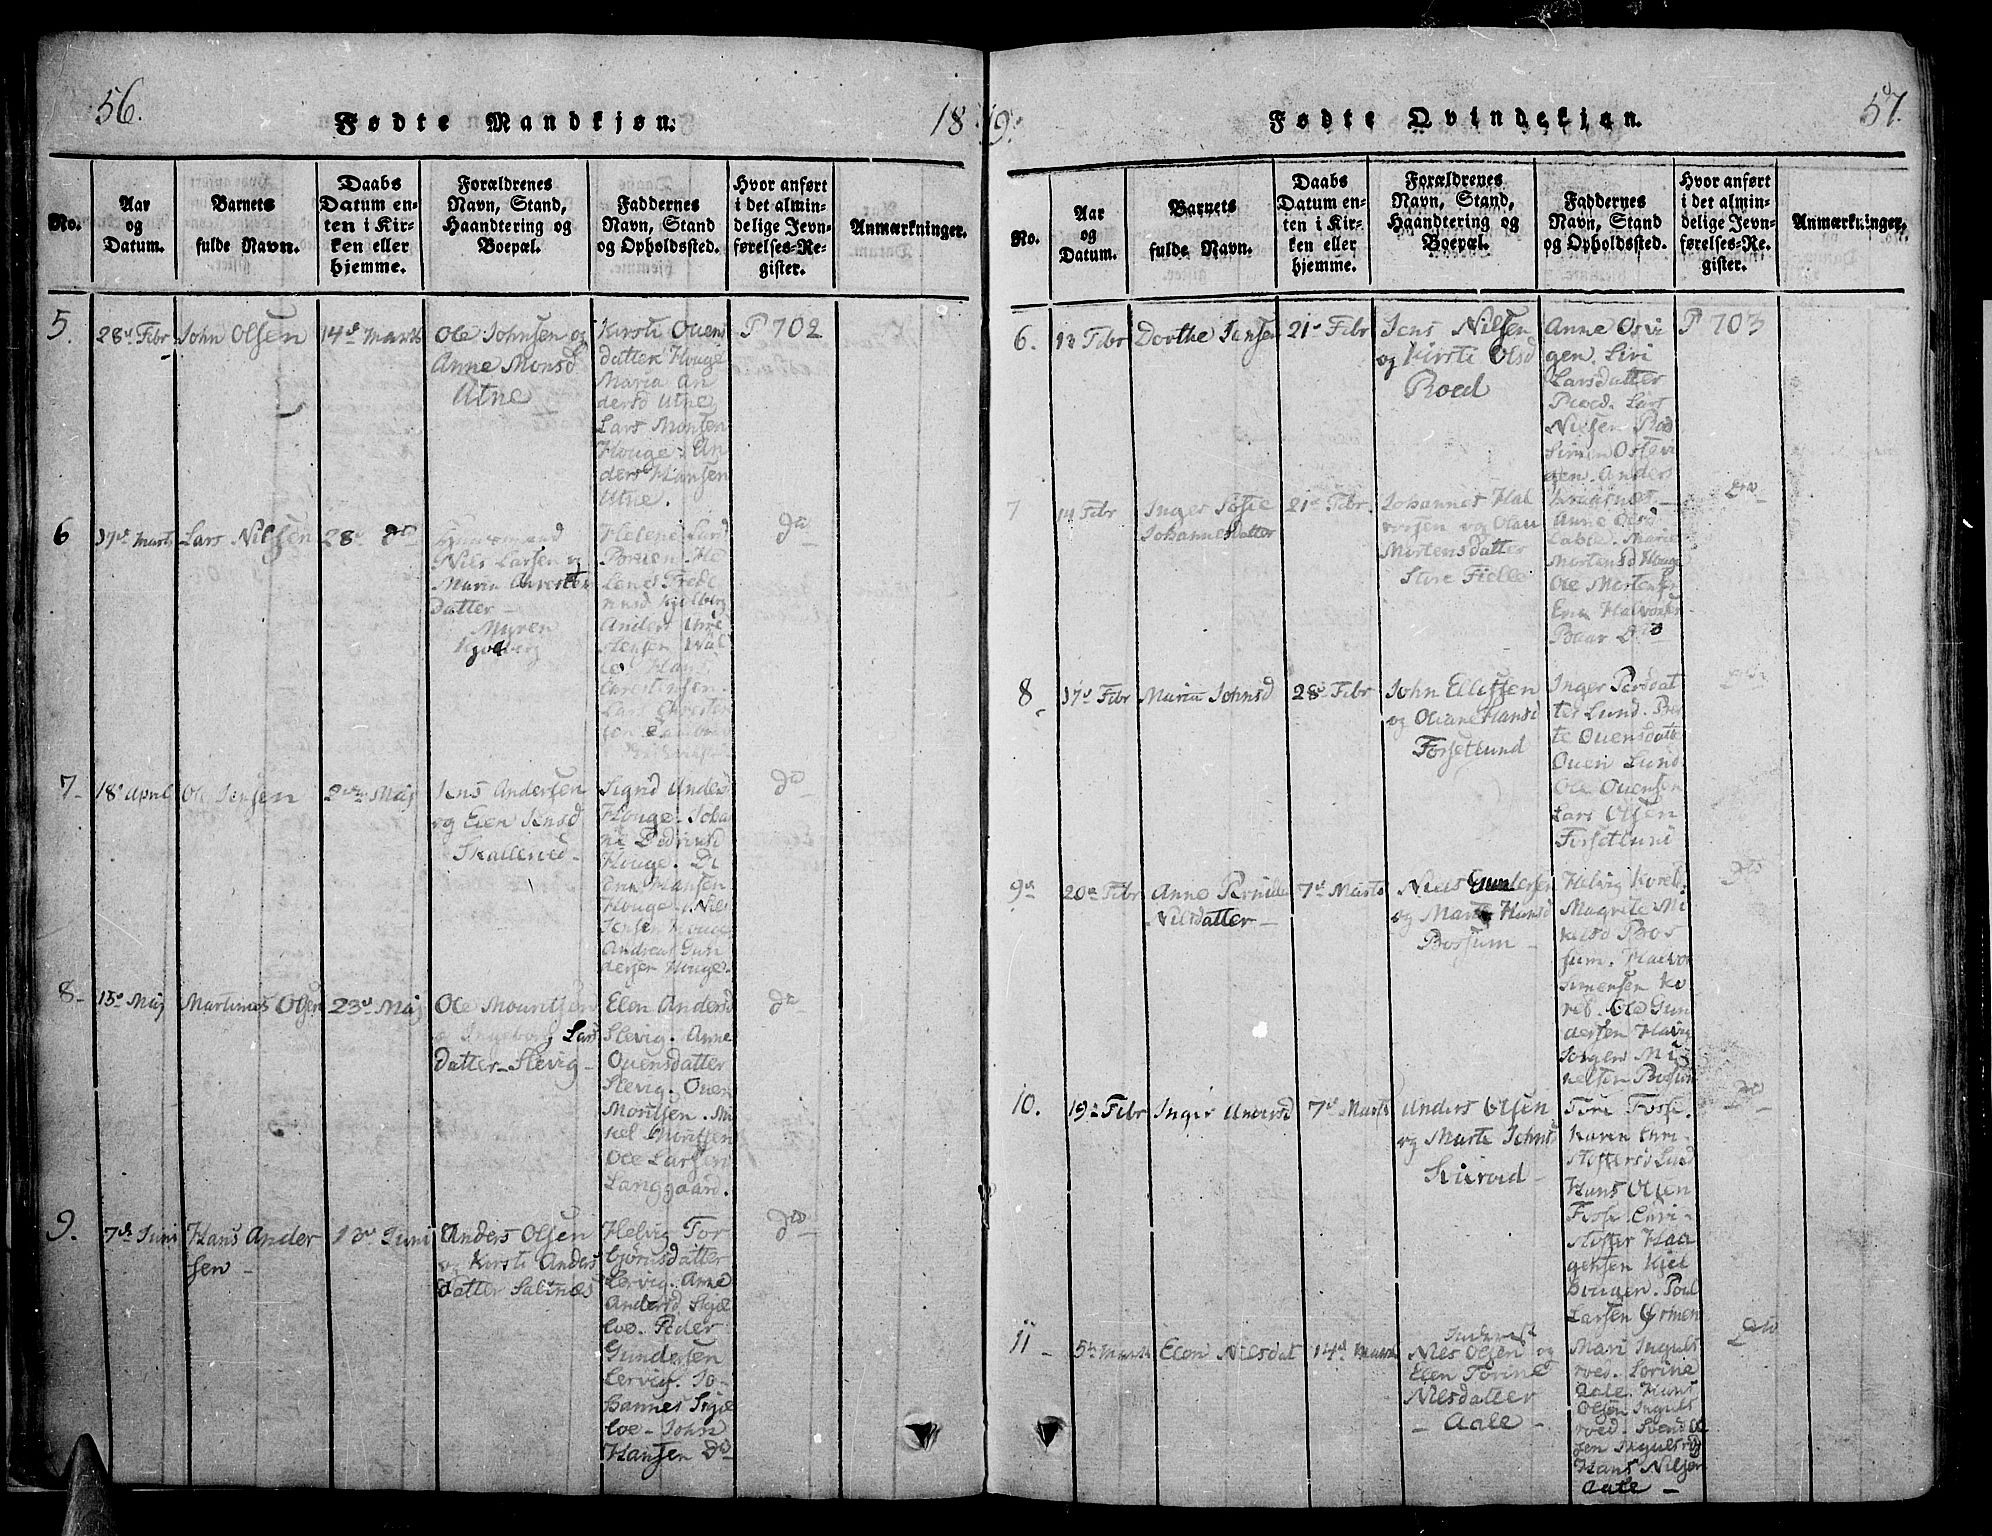 56.
Fødte Mandkjøn.
18
No.
Aar
og
Datum.
Barnets
fulde Navn.
Daabs
Datum en-
ten i Kir-
ken eller
hjemme.
Forældrenes
Navn, Stand,
Haandtering og
Boepæl.
Faddernes
Navn, Stand
og Opholdssted.
Hvor anført
i det almin-
delige Jevn-
førelses-Re-
gister.
Anmærkninger.
5.
28de Febr
John Olsen
14de Marts
Ole Johnsen og
Anne Monsd
Utne
Kirsti Ouens
datter Houge
Maria An
dersd Utne
Lars Monsen
Houge. An
ders Hansen
Utne.
P 702
6
17de Marts
Lars Nilsen
28de do
Nils Larsen og
Maria Christen
datter
Myren
Helene Lars
Anders Chri
stensen
Hans
Christensen
Lars Christen
do
7-
18de April
Ole Jensen
Maj
Jens Andersen
og Elen Jensd
Skallerud-
Sigrid Anders
Houge. Joha
ne Pedersd
Houge.
Hansen
Houge. Nils
Jensen Houge
Andreas Gun
dersen Houge-
do
8-
15de Maj
Martinus Olsen
23de Maj
Ole Mouritsen
og Ingeborg Lars
datter-Slevig-
Elen Andersd
Slevig. Anne
Ouensdatter
Slevig. Ouen
Moritsen. Mi
kel Moritsen
Ole Larsen
Langgaard.
do
9.
7de Juni
Hans Ander
sen-
13de Juni
Anders Olsen
og Kirsti Anders
datter Saltnæs
Helvig Tor
bjørnsdatter
Lervig. Anne
Andersd Skjæ
løe. Peder
Gundersen
Lervig. Jo-
hannes Skjæ
løe- John
Hansen do-
do
19.
Fødte Qvindekjøn.
57.
No.
Aar
og
Datum.
Barnets
fulde Navn.
Daabs
Datum en-
ten i Kir-
ken eller
hjemme.
Forældrenes
Navn, Stand,
Haandtering og
Boepæl.
Faddernes
Navn, Stand
og Opholdssted.
Hvor anført
i det almin-
delige Jevn-
førelses-Re-
gister.
Anmærkninger.
6.
13 Febr
Dorthe Jensen
21de Febr
Jens Nilsen
og Kirsti Olsd
Roed
Anne Osvi
gen. Siri
Larsdatter
Roed. Lars
Nielsen Roe
Simen Ostevi
gen. Anders
Kragsnæs
P 703
7
14 Febr
Inger Sofie
Johannesdatter
21de Febr
Johannes Hal
vorsen og Olau
Mortensdatter
Store Fielle
Anne Olsd
Labie. Marie
Mortensd Houge
Ole Mortensen
Halvorsen
do
do
8
17de Febr
Maria Johnsd
28de Febr
John Ellefsen
og Oliane Hansd
Forsetlund
Inger Persdat
ter Lund. Ber
te Ouensdatte
Ouen Lund
Ole Ouensen
Lars Olsen
Forsetlund
do
9de
20de Febr
Anne Pernille
Nilsdatter-
7de Marts
Niels Gundersen
og Marte Hansd
Bossum-
Helvig Koreb.
Magrete Mi
kelsd Bos
sum. Halvor
Simensen Ko
reb. Ole Gun
dersen Havig
Jorgen Mi
kelsen Bossum
do
10.
19de Febr
Inger Andersd
7de Marts
Anders Olsen
og Marte Johns
Kiirød-
Tore Fosse.
Karen Chri-
stoffersd Lund
Hans Olsen
Fosse. Chri-
stoffer Haa
gensen Kjel
Bougen. Poul
Larsen Ørmen
do
11-
5te Marts
Elen Nilsdat
14de Marts
Nils Olsen og
Elen Torine
Nilsdatter
- Aale -
Mari Inguls
rød. Torine
Aale. Hans
Olsen Inguls
rød. Svend Ol
sen Ingulsrød
Hans Nilsen
Aale -
do